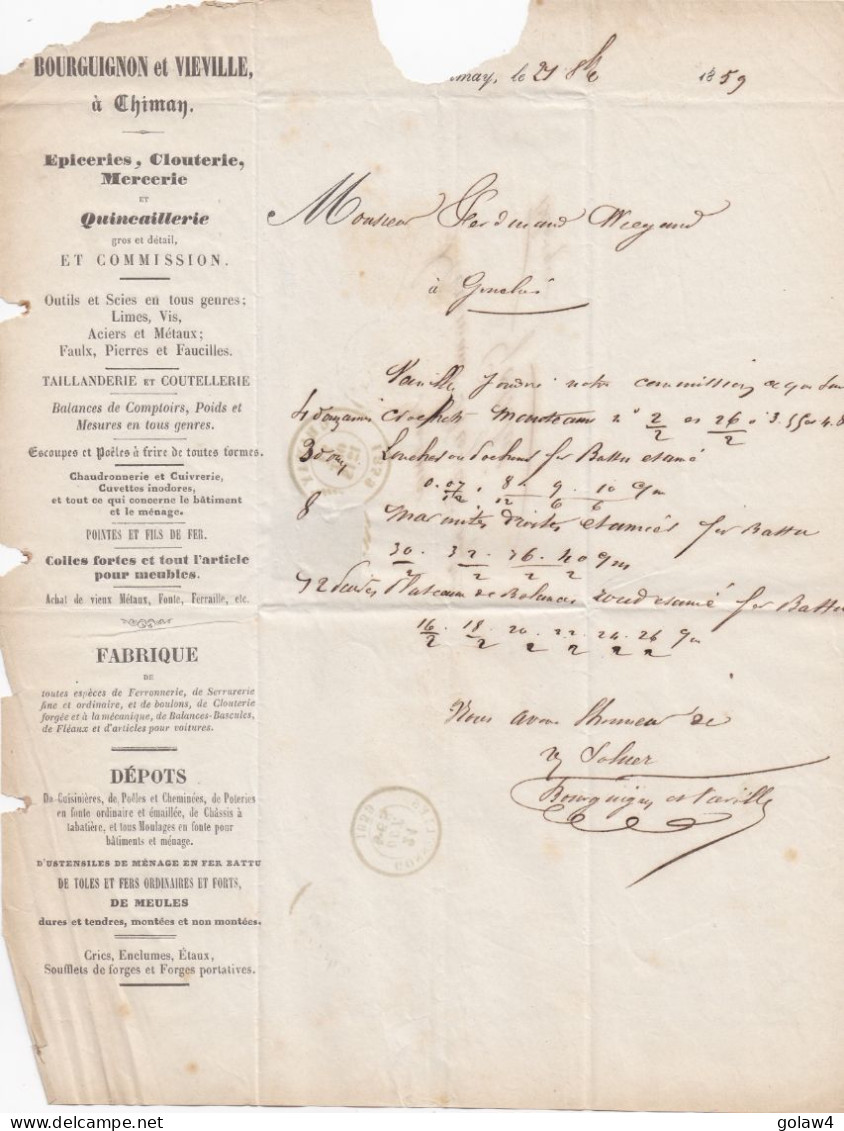 BOURGUIGNON et VIEVILLE,
à Chimay.
Epiceries, Clouterie,
Mercerie
ET
Quincaillerie
gros et détail,
ET COMMISSION.
Outils et Scies en tous genres;
Limes, Vis,
Aciers et Métaux;
Faulx, Pierres et Faucilles.
TAILLANDERIE ET COUTELLERIE
Balances de Comptoirs, Poids et
Mesures en tous genres.
Escoupes et Poêles à frire de toutes formes.
Chaudronnerie et Cuivrerie,
Cuvettes inodores,
et tout ce qui concerne le bâtiment
et le ménage.
POINTES ET FILS DE FER.
Colles fortes et tout l'article
pour meubles.
Achat de vieux Métaux, Fonte, Ferraille, etc.
FABRIQUE
DE
toutes espèces de Ferronnerie, de Serrurerie
fine et ordinaire, et de boulons, de Clouterie
forgée et à la mécanique, de Balances-Bascules,
de Fléaux et d'articles pour voitures.
DÉPOTS
De Cuisinières, de Poêles et Cheminées, de Poteries
en fonte ordinaire et émaillée, de Châssis à
tabatière, et tous Moulages en fonte pour
bâtiments et ménage.
D'USTENSILES DE MÉNAGE EN FER BATTU
DE TOLES ET FERS ORDINAIRES ET FORTS,
DE MEULES
dures et tendres, montées et non montées.
Crics, Enclumes, Étaux,
Soufflets de forges et Forges portatives.
may, le 21 8bre 1859
Monsieur Ferdinand Wiegand
à
joindre notre commission
fer Battu étamé
8 marmites droites étamées fer Battu
30/2 . 32/2 . 36/2 . 40/2 qm
Plateaux de Balances rond étamé fer Battu
16/2 . 18/2 . 20/2 . 22/2 . 24/2 . 26/2 qm
Nous avons l'honneur de
v/ Saluer
Bourguignon et Vieville
golaw4